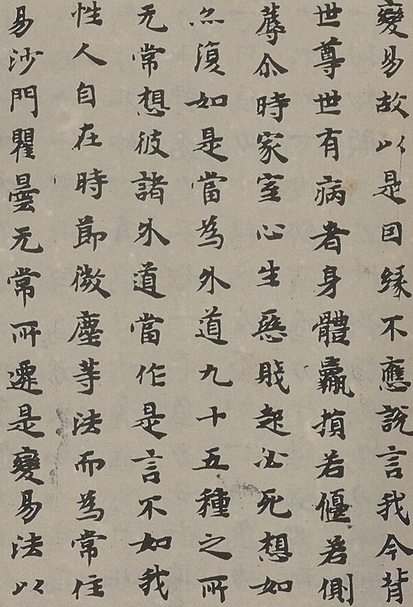 變易故以是因縁不應說言我今背
世尊世有病者身體羸損若偃若側
蓐尒時家室心生惡賤起必死想如
復如是當為外道九十五種之所
无常想彼諸外道當作是言不如我
性人自在時節微塵等法而為常住
易沙門瞿曇无常所遷是變易法以